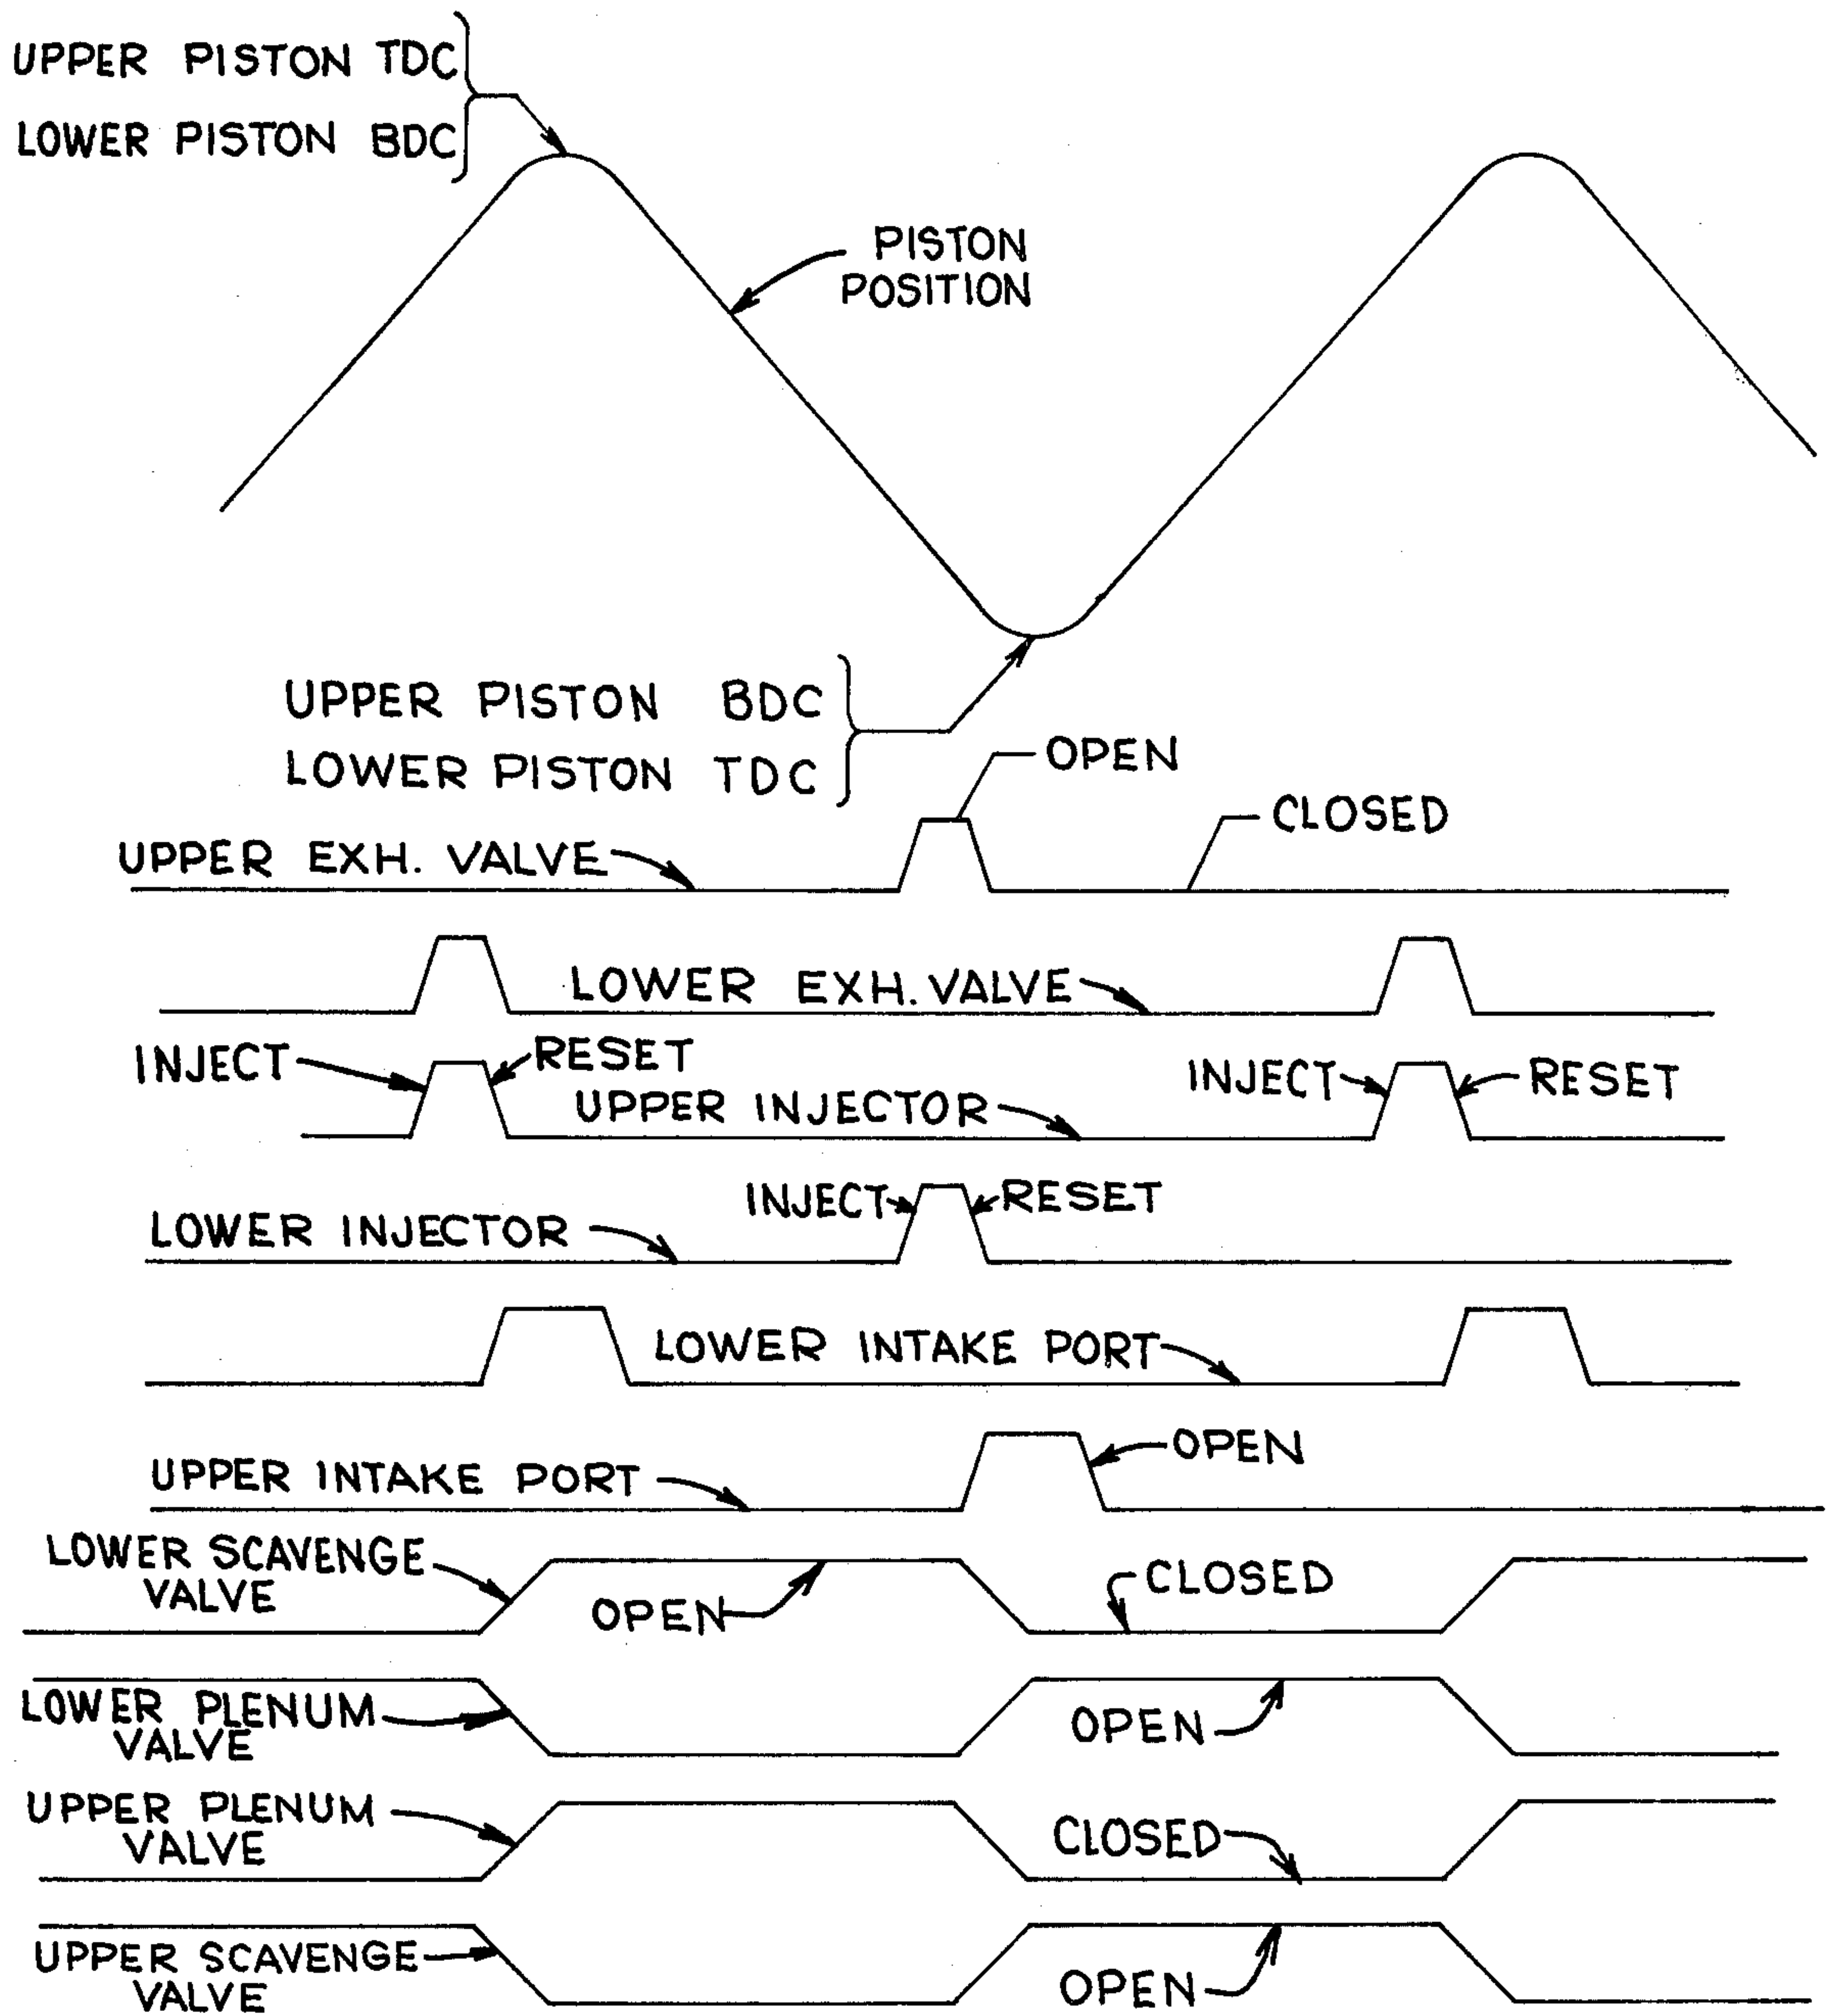 UPPER PISTON TDC
LOWER PISTON BDC
PISTON
POSITION
UPPER PISTON BDC
LOWER PISTON TDC
OPEN
CLOSED
UPPER EXH. VALVE
LOWER EXH. VALVE
INJECT
RESET
UPPER INJECTOR
INJECT
RESET
INJECT
RESET
LOWER INJECTOR
LOWER INTAKE PORT
OPEN
UPPER INTAKE PORT
LOWER SCAVENGE
VALVE
OPEN
CLOSED
LOWER PLENUM
VALVE
OPEN
UPPER PLENUM
VALVE
CLOSED
UPPER SCAVENGE
VALVE
OPEN